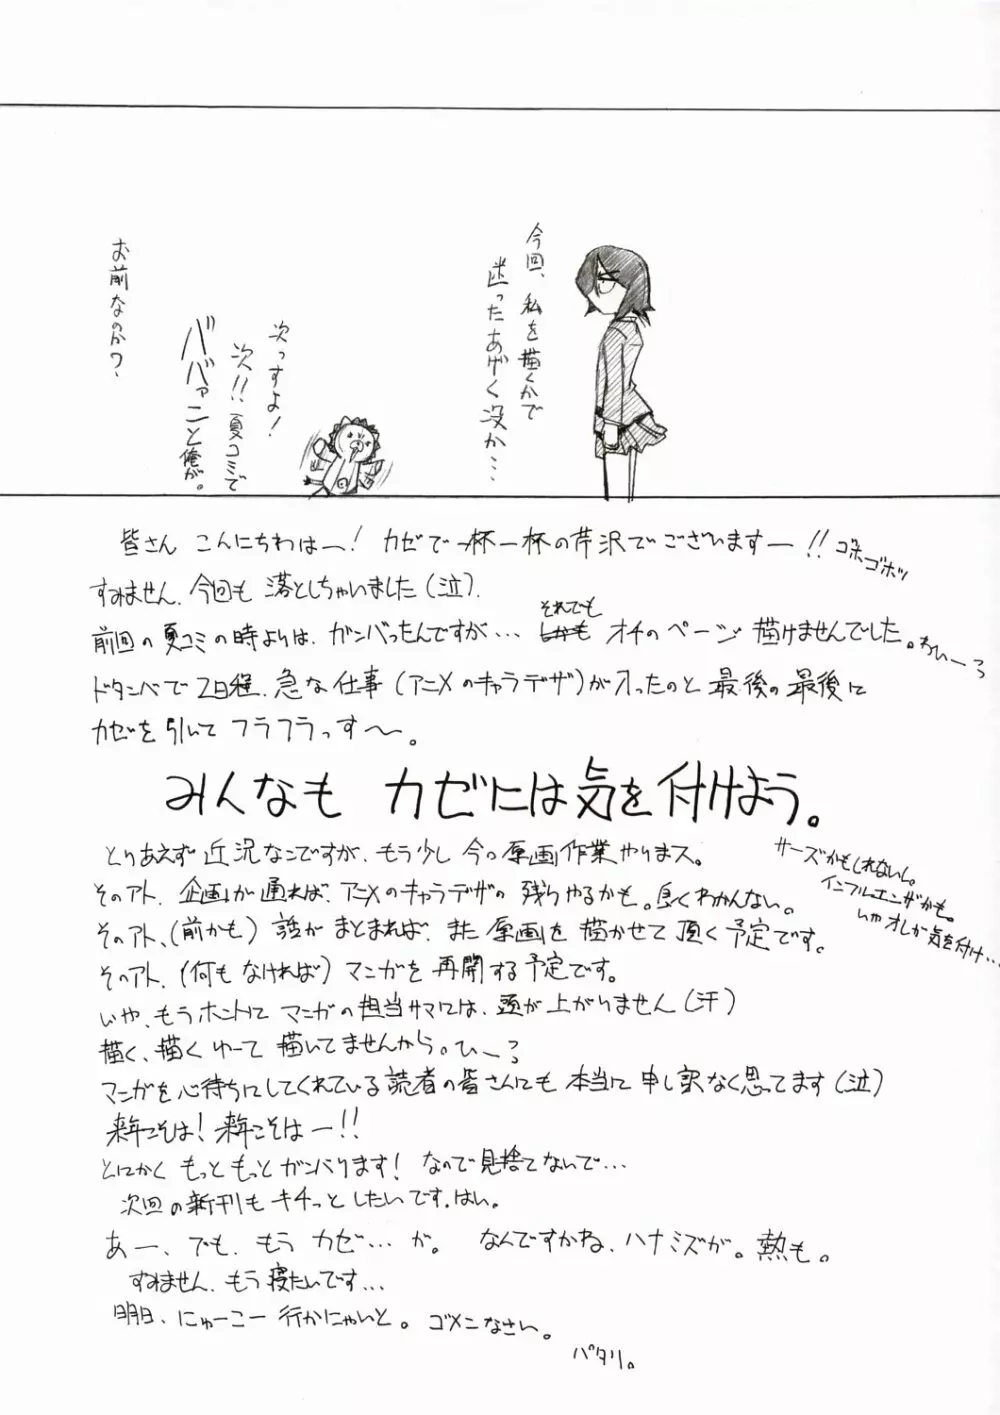 今回、私を描くかで
迷ったあげく没か…
次っすよ！
次!!夏コミで
ババァニと俺が。
お前なのか？
皆さん こんにちわはー！ カゼで一杯一杯の芹沢でございますー!! ゴホゴホッ
すみません、今回も 落としちゃいました（泣）．
前回の夏コミの時よりは、ガンバったんですが… それでも オチのページ 描けませんでした。わぃーろ
ドタンバで2日程、急な仕事（アニメのキャラデザ）が入ったのと 最後の最後に
カゼを引いて フラフラっす〜。
みんなも カゼには気を付けよう。
とりあえず 近況なこですが、もう少し 今の原画作業やりまス。
サーズかもしれないし。
インフルエンザかも。
いや オレが気を付け…
そのアト、企画が通れば、アニメのキャラデザの 残りやるかも。良くわかんない。
そのアト、（前かも）話が まとまれば、また 原画を 描かせて 頂く予定です。
そのアト、（何もなければ）マンガを 再開する予定です。
いや、もうホントに マンガの担当サマには、頭が上がりません（汗）
描く、描くゆーて 描いてませんから。ひーろ
マンガを心待ちにしてくれている 読者の皆さんにも 本当に 申し訳なく思ってます（泣）
来年こそは！来年こそはー!!
とにかく もっともっと ガンバります！ なので見捨てないで…
次回の新刊も キチっと したいです、はい。
あー、でも、もう カゼ…が。 なんですかね、ハナミズが。熱も。
すみません、もう 寝たいです…
明日、にゅーこー 行かにゃいと。 ゴメンなさい。
パタリ。